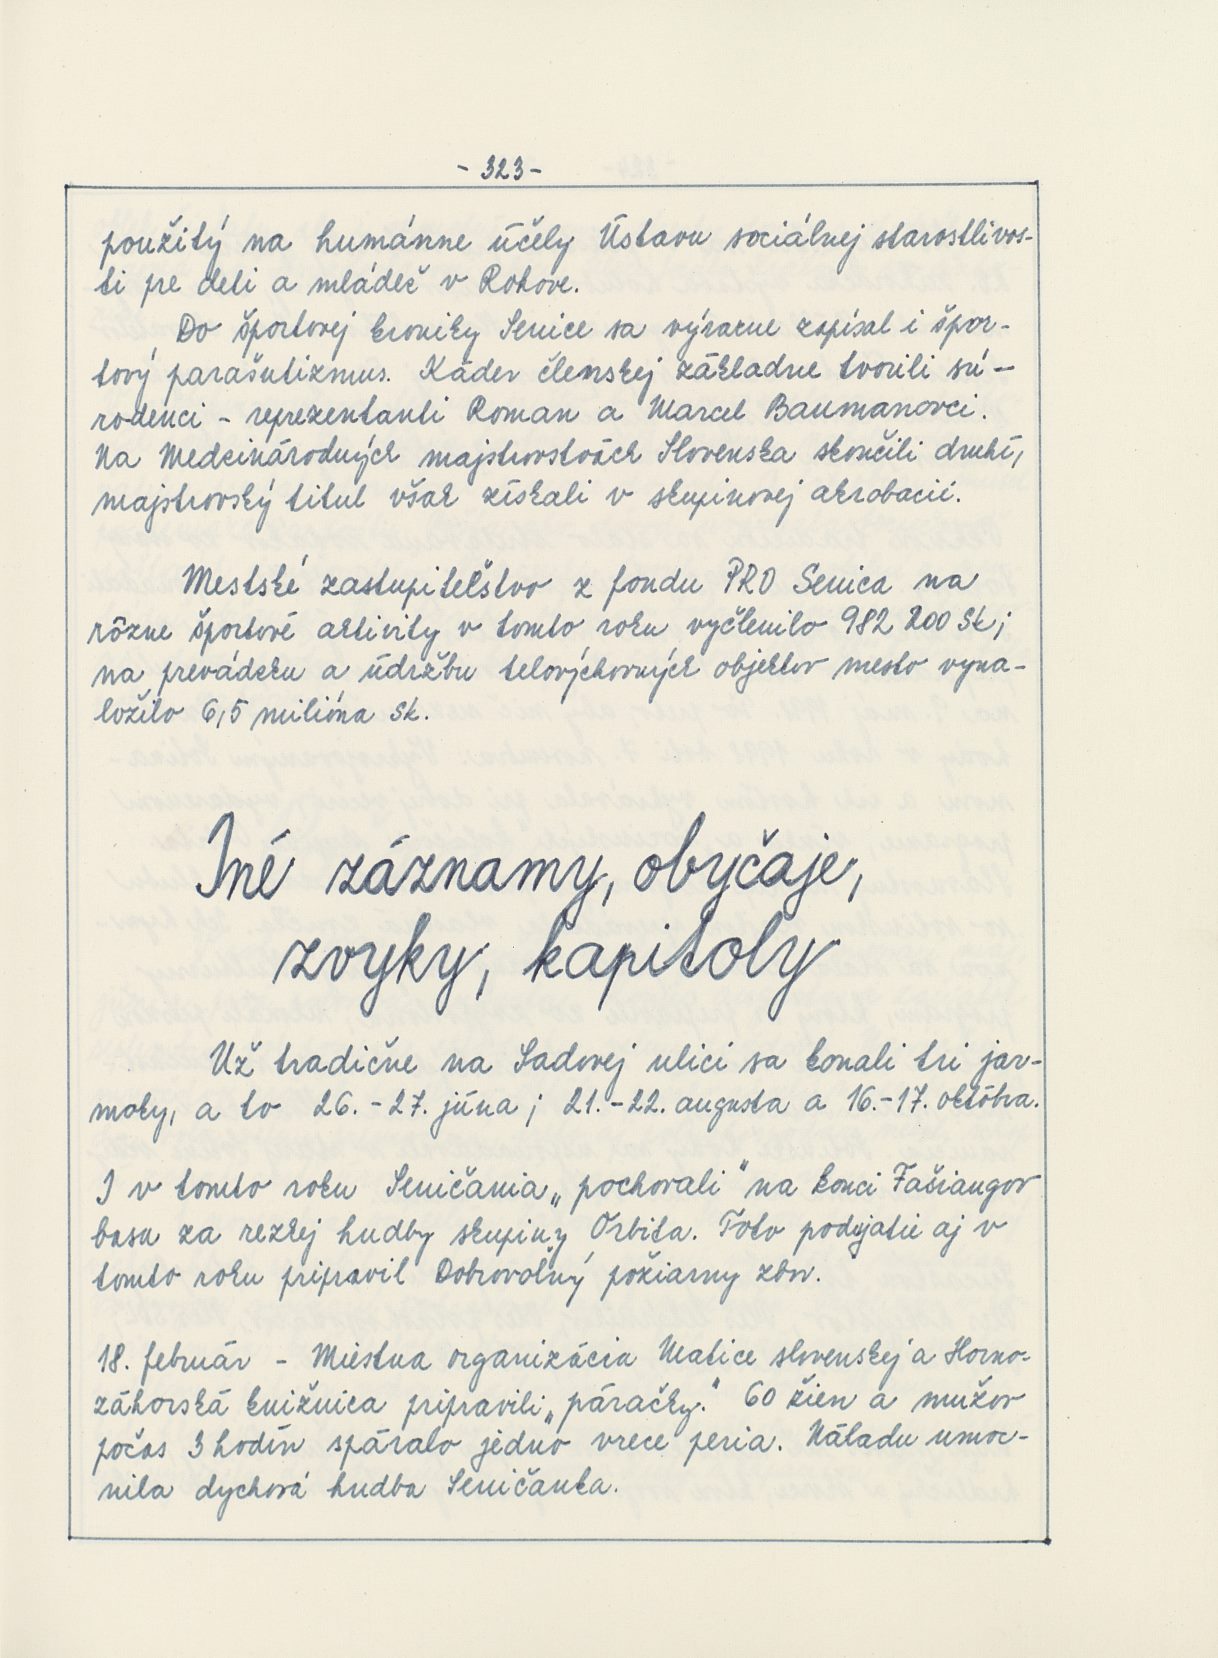 - 323 -
použitý na humánne účely Ústavu sociálnej starostlivos-
ti pre deti a mládež v Rohove.
Do športovej kroniky Senice sa výrazne zapísal i špor-
tový parašutizmus. Káder členskej základne tvorili sú-
rodenci - reprezentanti Roman a Marcel Baumanovci.
Na Medzinárodných majstrovstvách Slovenska skončili druhí,
majstrovský titul však získali v skupinovej akrobacii.
Mestské zastupiteľstvo z fondu PRO Senica na
rôzne športové aktivity v tomto roku vyčlenilo 982 200 Sk;
na prevádzku a údržbu telovýchovných objektov mesto vyna-
ložilo 6,5 milióna Sk.
Iné záznamy, obyčaje,
zvyky, kapitoly
Už tradične na Sadovej ulici sa konali tri jar-
moky, a to 26. - 27. júna; 21. - 22. augusta a 16. - 17. októbra.
I v tomto roku Seničania „pochovali" na konci Fašiangov
basu za rezkej hudby skupiny Orbita. Toto podujatie aj v
tomto roku pripravil Dobrovoľný požiarny zbor.
18. február - Miestna organizácia Matice slovenskej a Horno-
záhorská knižnica pripravili „páračky." 60 žien a mužov
počas 3 hodín spáralo jedno vrece peria. Náladu umoc-
nila dychová hudba Seničanka.